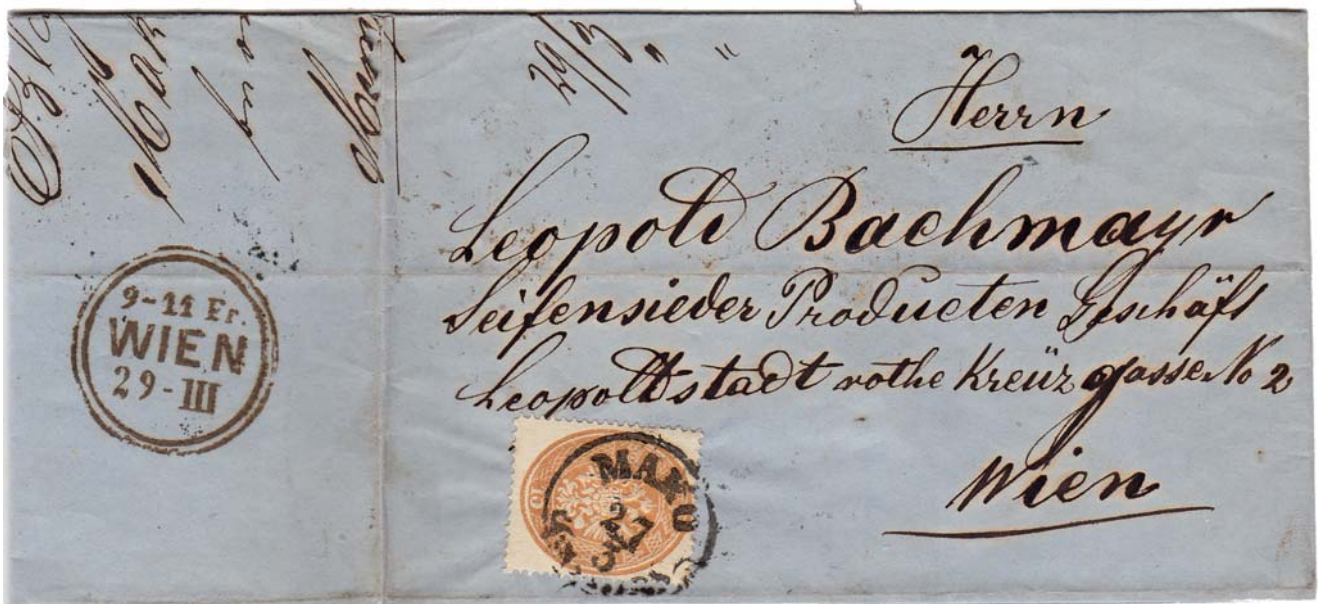 29/3 " "
Herrn
Leopold Bachmayr
Seifensieder Producten Geschäft
Leopoldstadt rothe Kreüz gasse No 2
Wien
9-11 Fr.
WIEN
29-III
MAKO
27
3